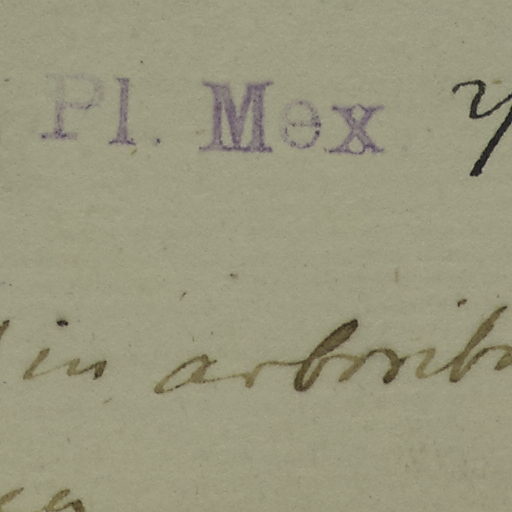 Pl. Mex
in arborib